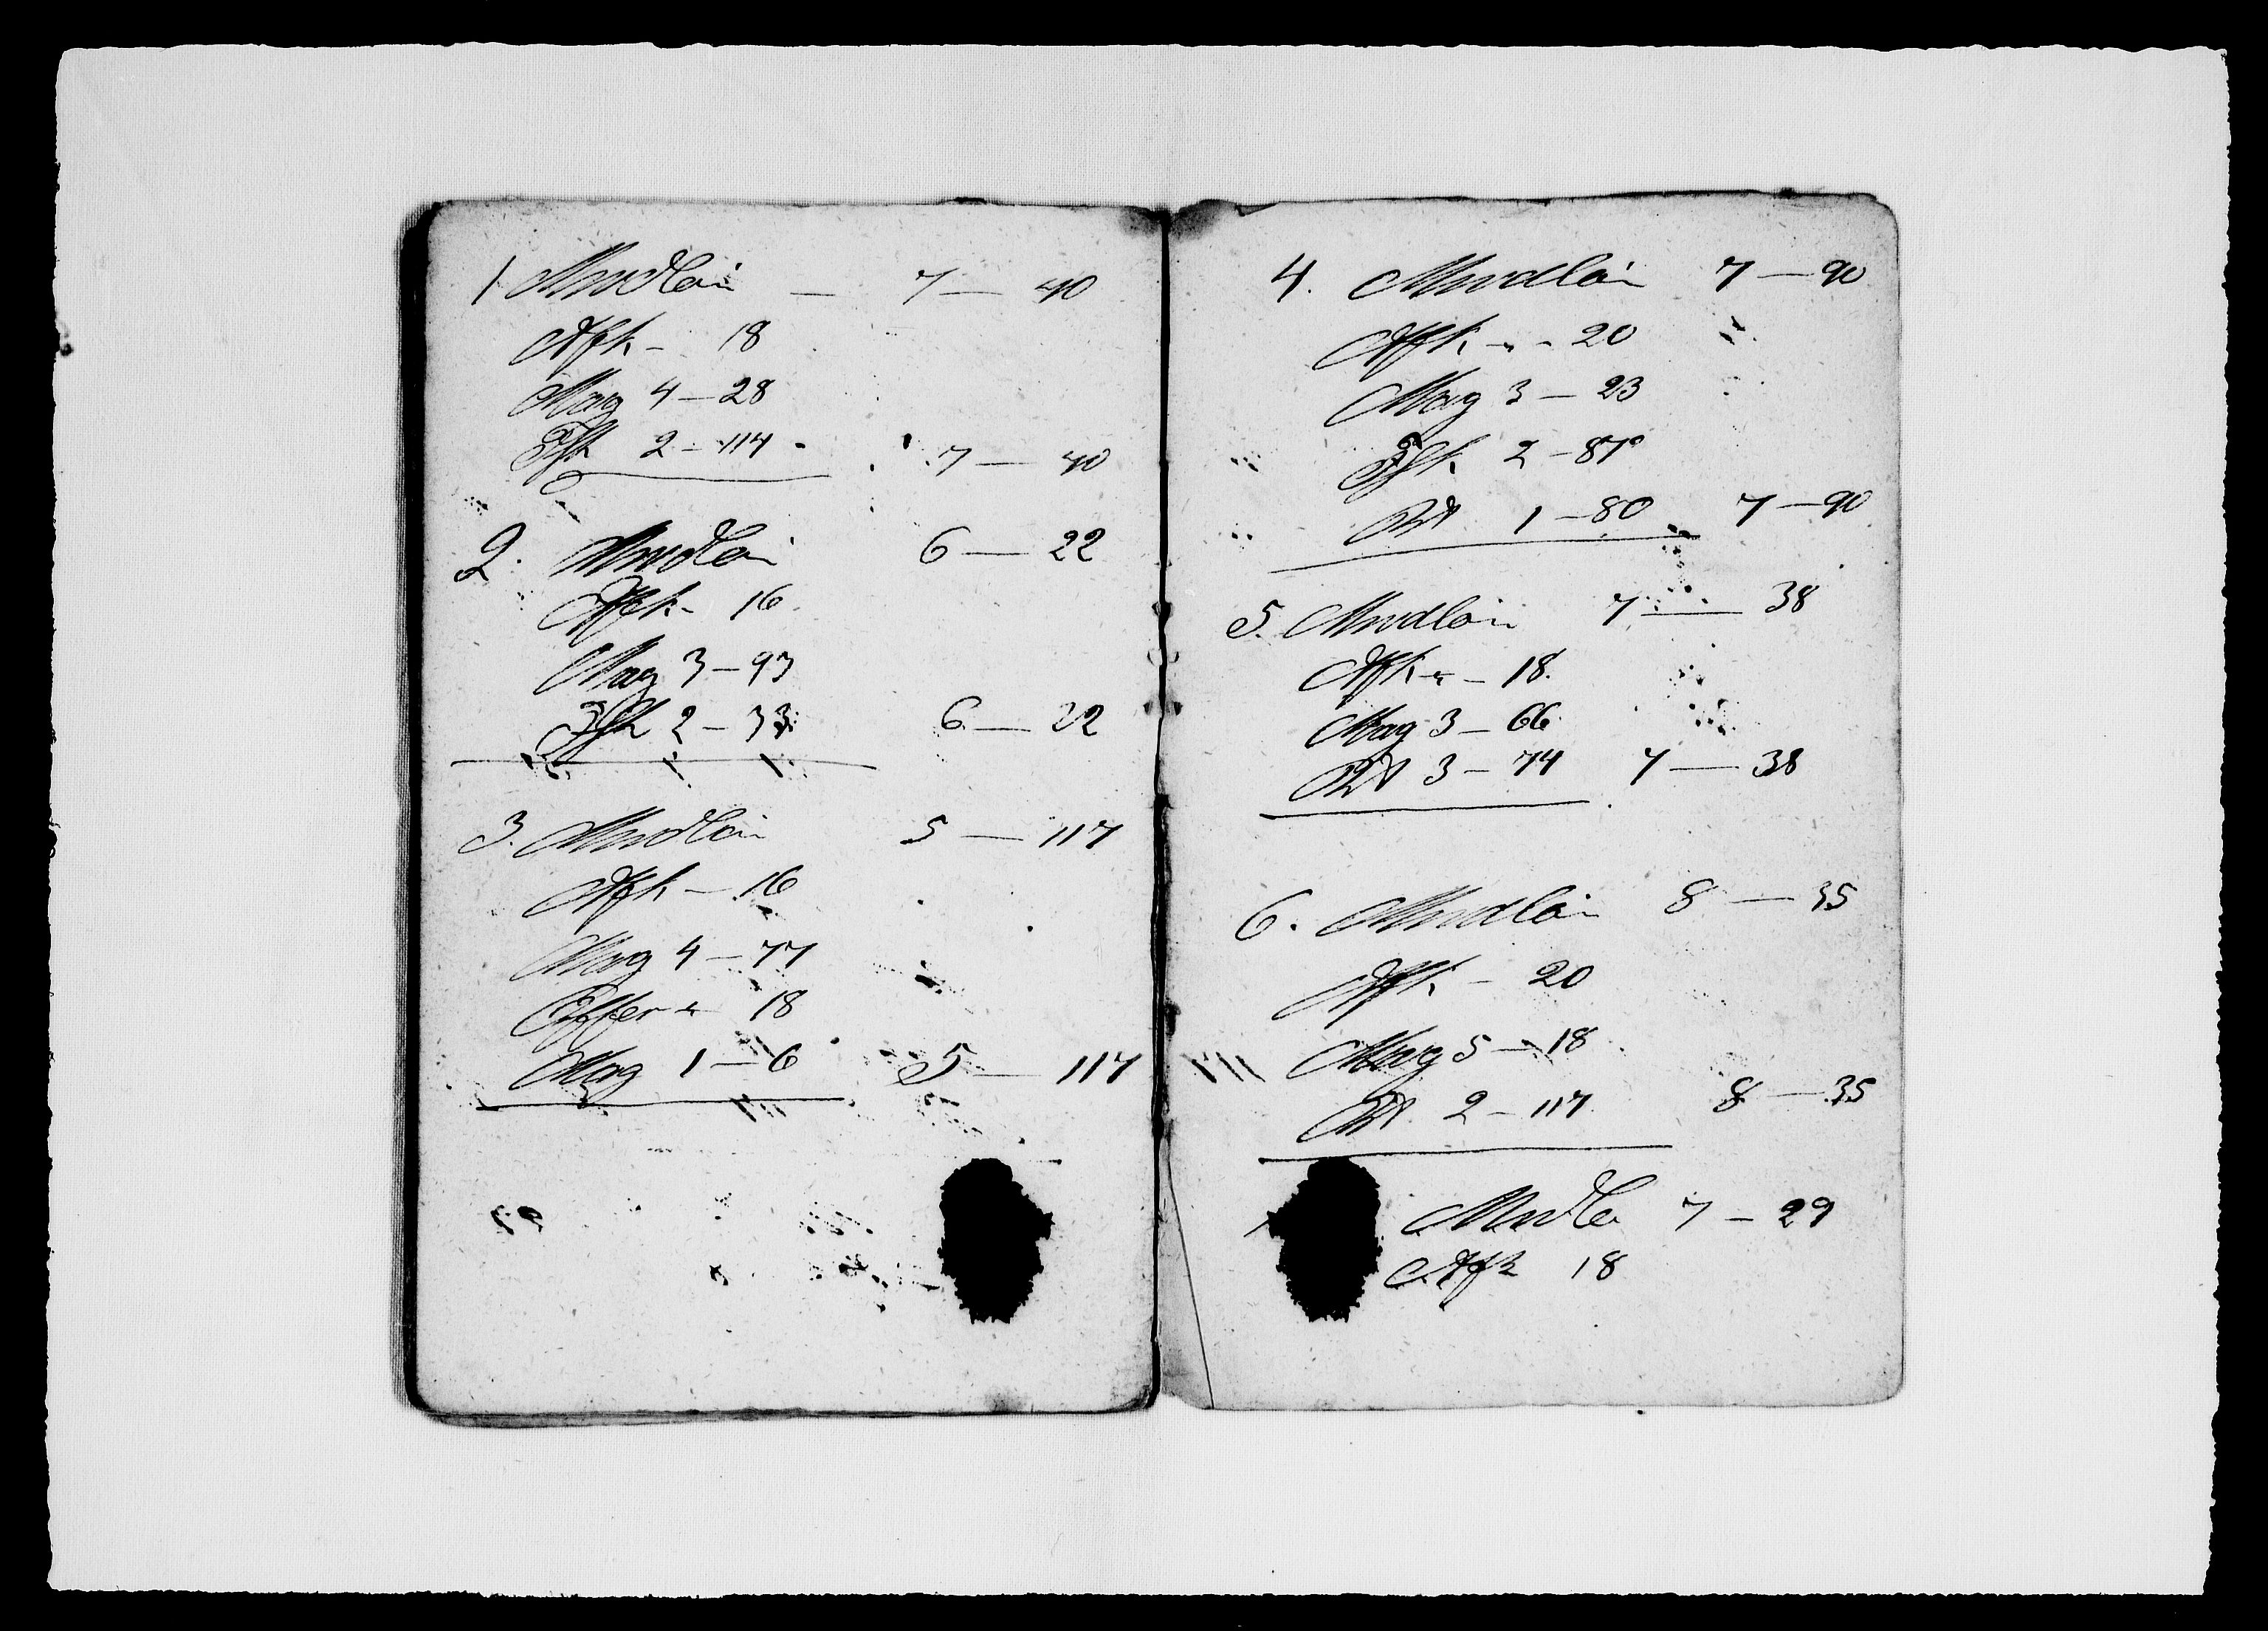 1 Mndlai — 7 — 40
Afk - 18
Mag 4 — 28
2 — 114 - 7 — 40
2. Mndlai 6 — 22
Afk - 16
Mag 3 — 93
2 — 33 6 — 22
3. Mndlai 5 — 117
Afk — 16
Mag 4 — 77
Effer " 18
Mag 1 — 6 5 — 117
4. Mndlai 7 — 90
Afk " - 20
Mag 3 — 23
2 — 87
1 — 80 7 — 90
5. Mndlai 7 — 38
Afk " - 18
Mag 3 — 66
3 — 74 7 — 38
6. Mndlai 8 — 35
Afk - 20
Mag 5 — 18
2 — 117 8 — 35
Mndla 7 — 29
Afk 18